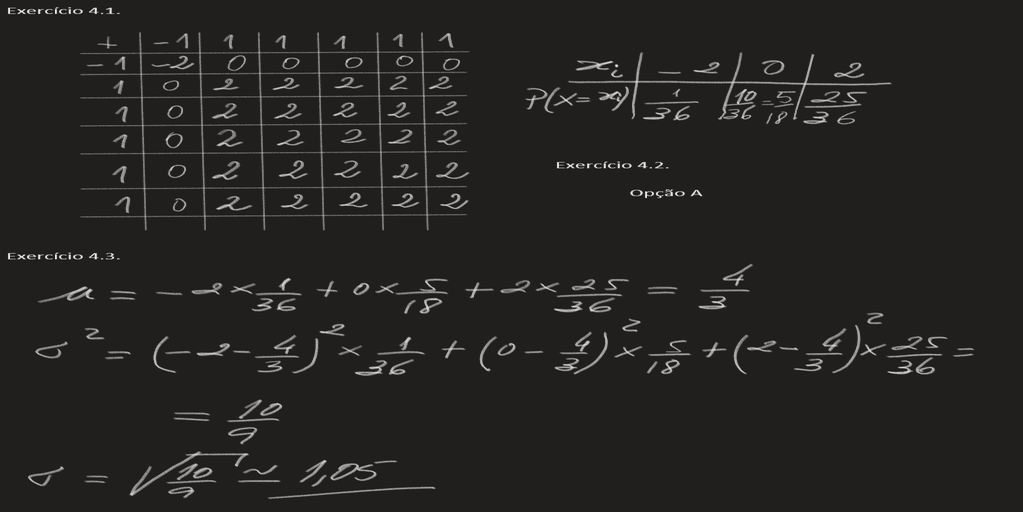 Exercício 4.1.
+ -1 1 1 1 1 1
-1 -2 0 0 0 0 0
1 0 2 2 2 2 2
1 0 2 2 2 2 2
1 0 2 2 2 2 2
1 0 2 2 2 2 2
1 0 2 2 2 2 2
xi | -2 | 0 | 2
P(X=xi) | 1/36 | 10/36 = 5/18 | 25/36
Exercício 4.2.
Opção A
Exercício 4.3.
μ = -2 × 1/36 + 0 × 5/18 + 2 × 25/36 = 4/3
σ² = (-2 - 4/3)² × 1/36 + (0 - 4/3)² × 5/18 + (2 - 4/3)² × 25/36 =
= 10/9
σ = √(10/9) ≃ 1,05